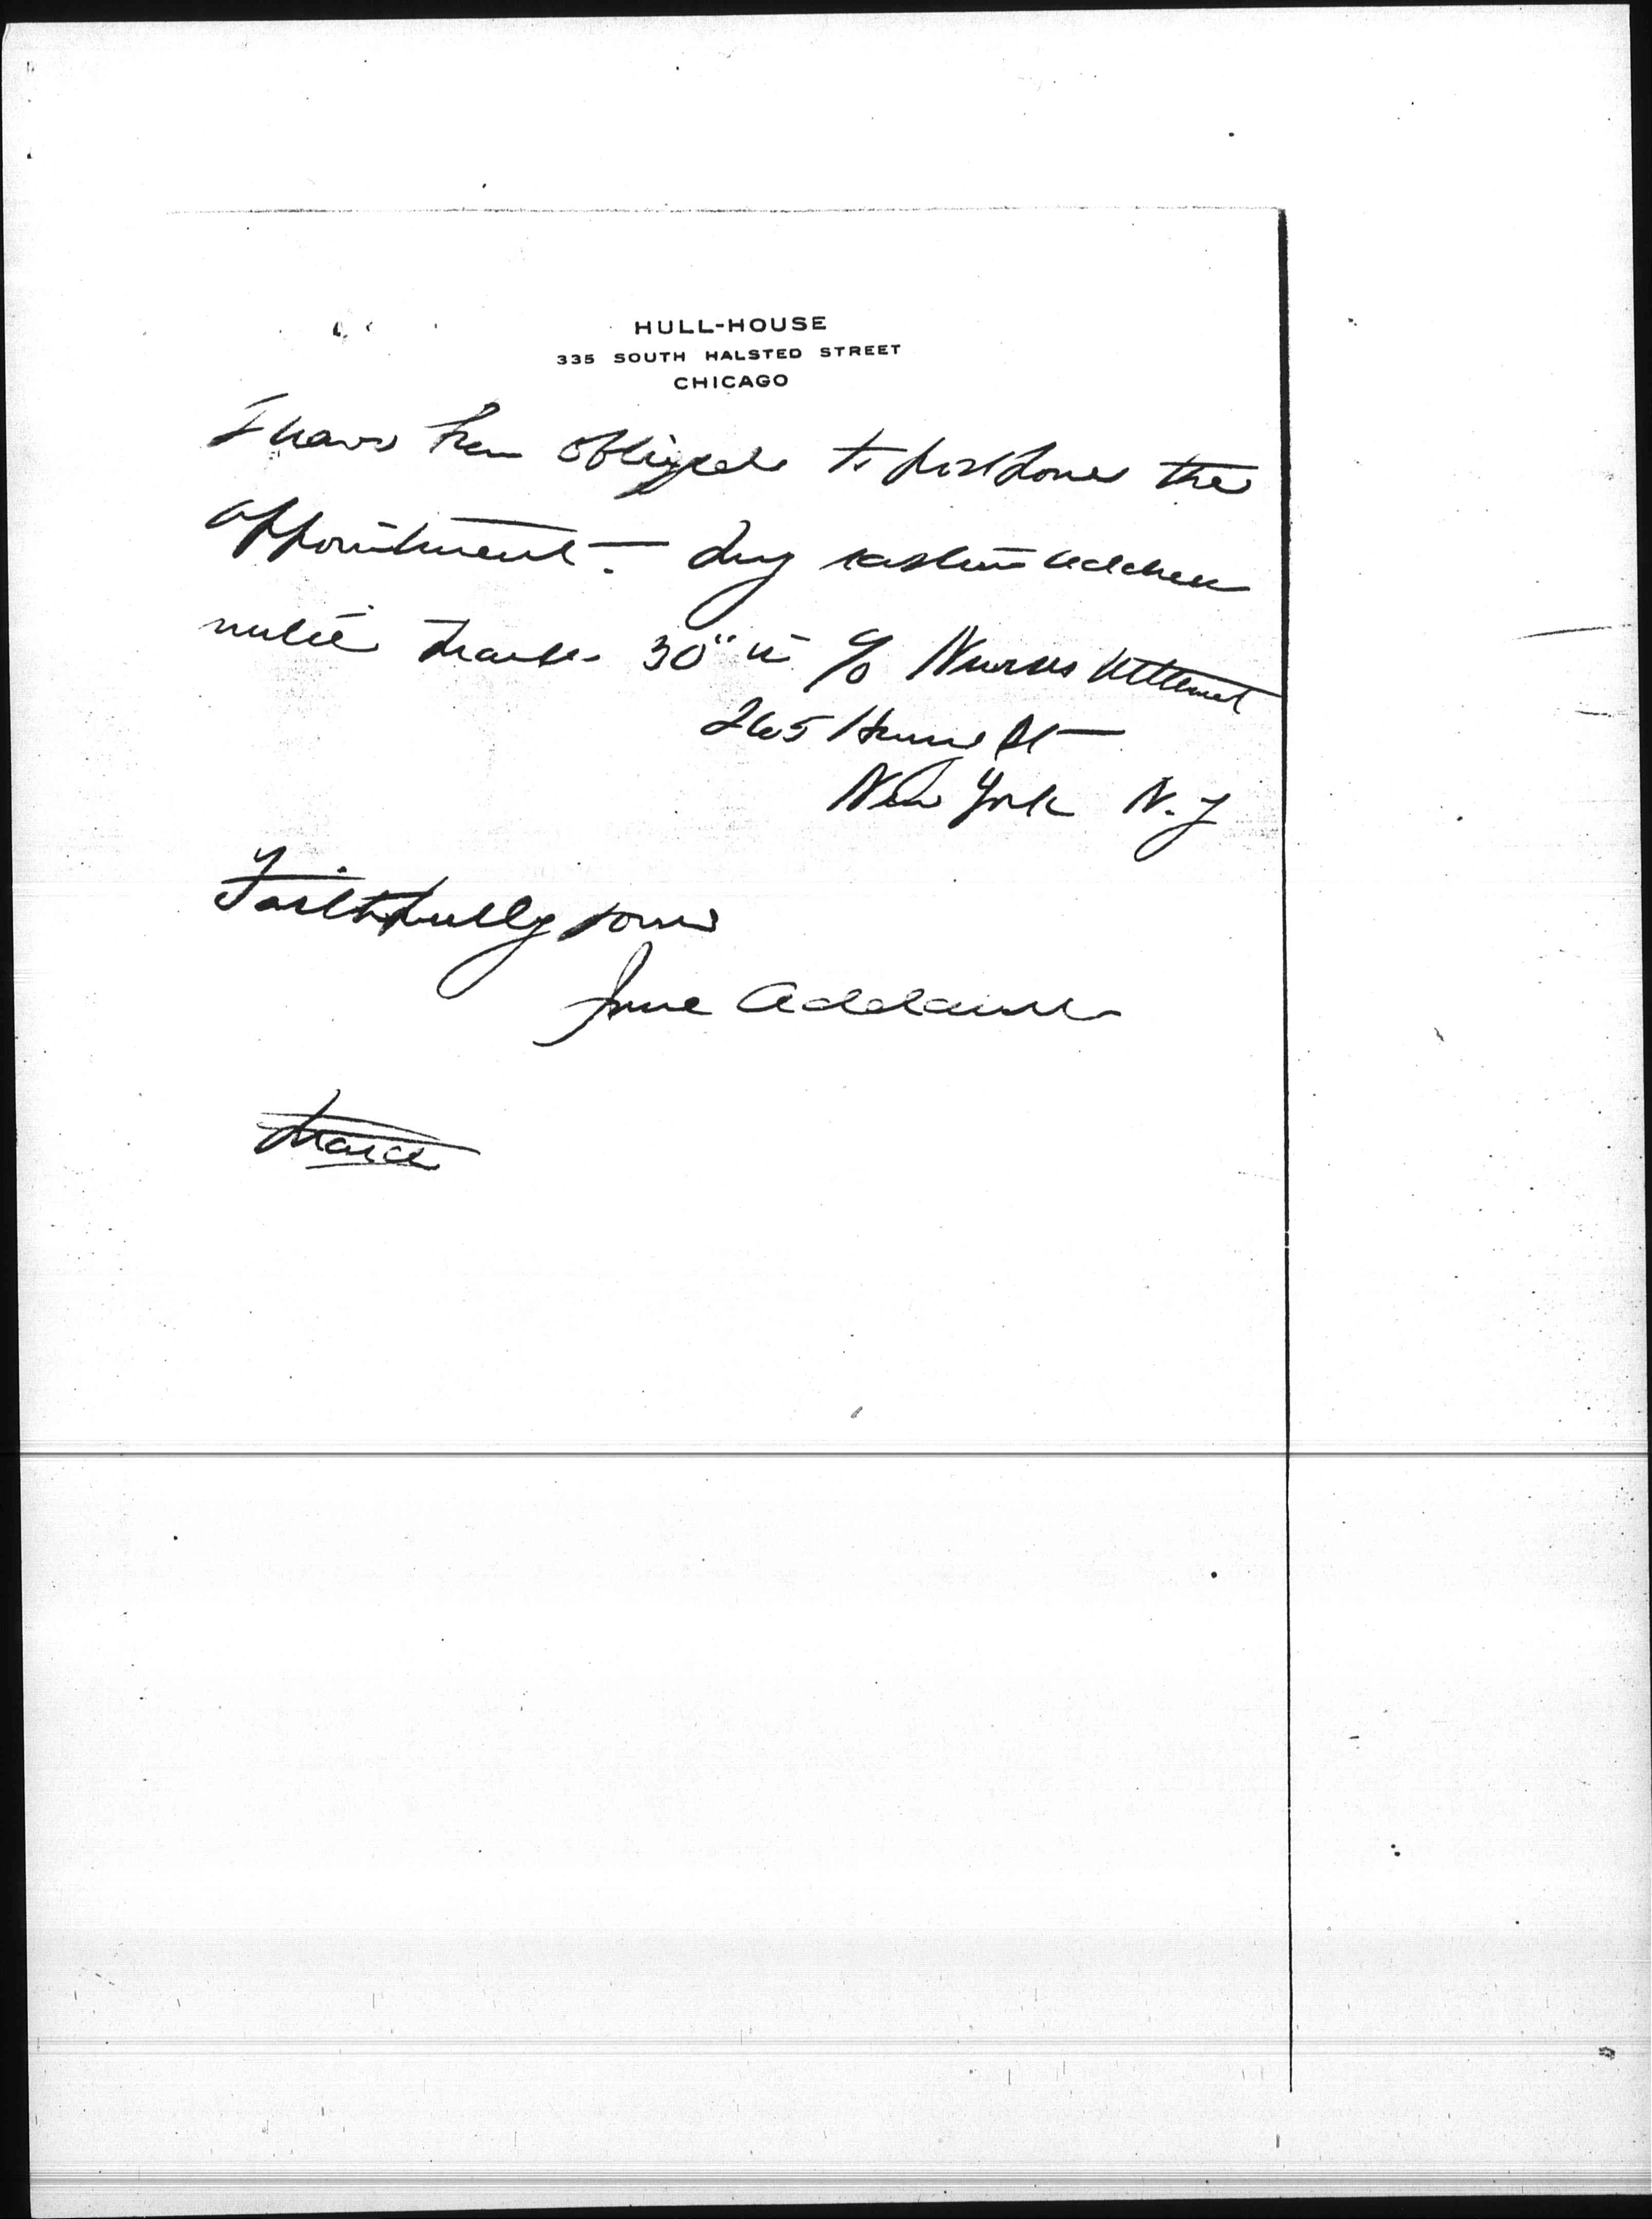 HULL-HOUSE
335 SOUTH HALSTED STREET
CHICAGO
I have been obliged to postpone the
appointment. My eastern address
until March 30" is c/o Nurses Settlement
265 Henry St
New York N.Y
Faithfully yours
Jane Addams